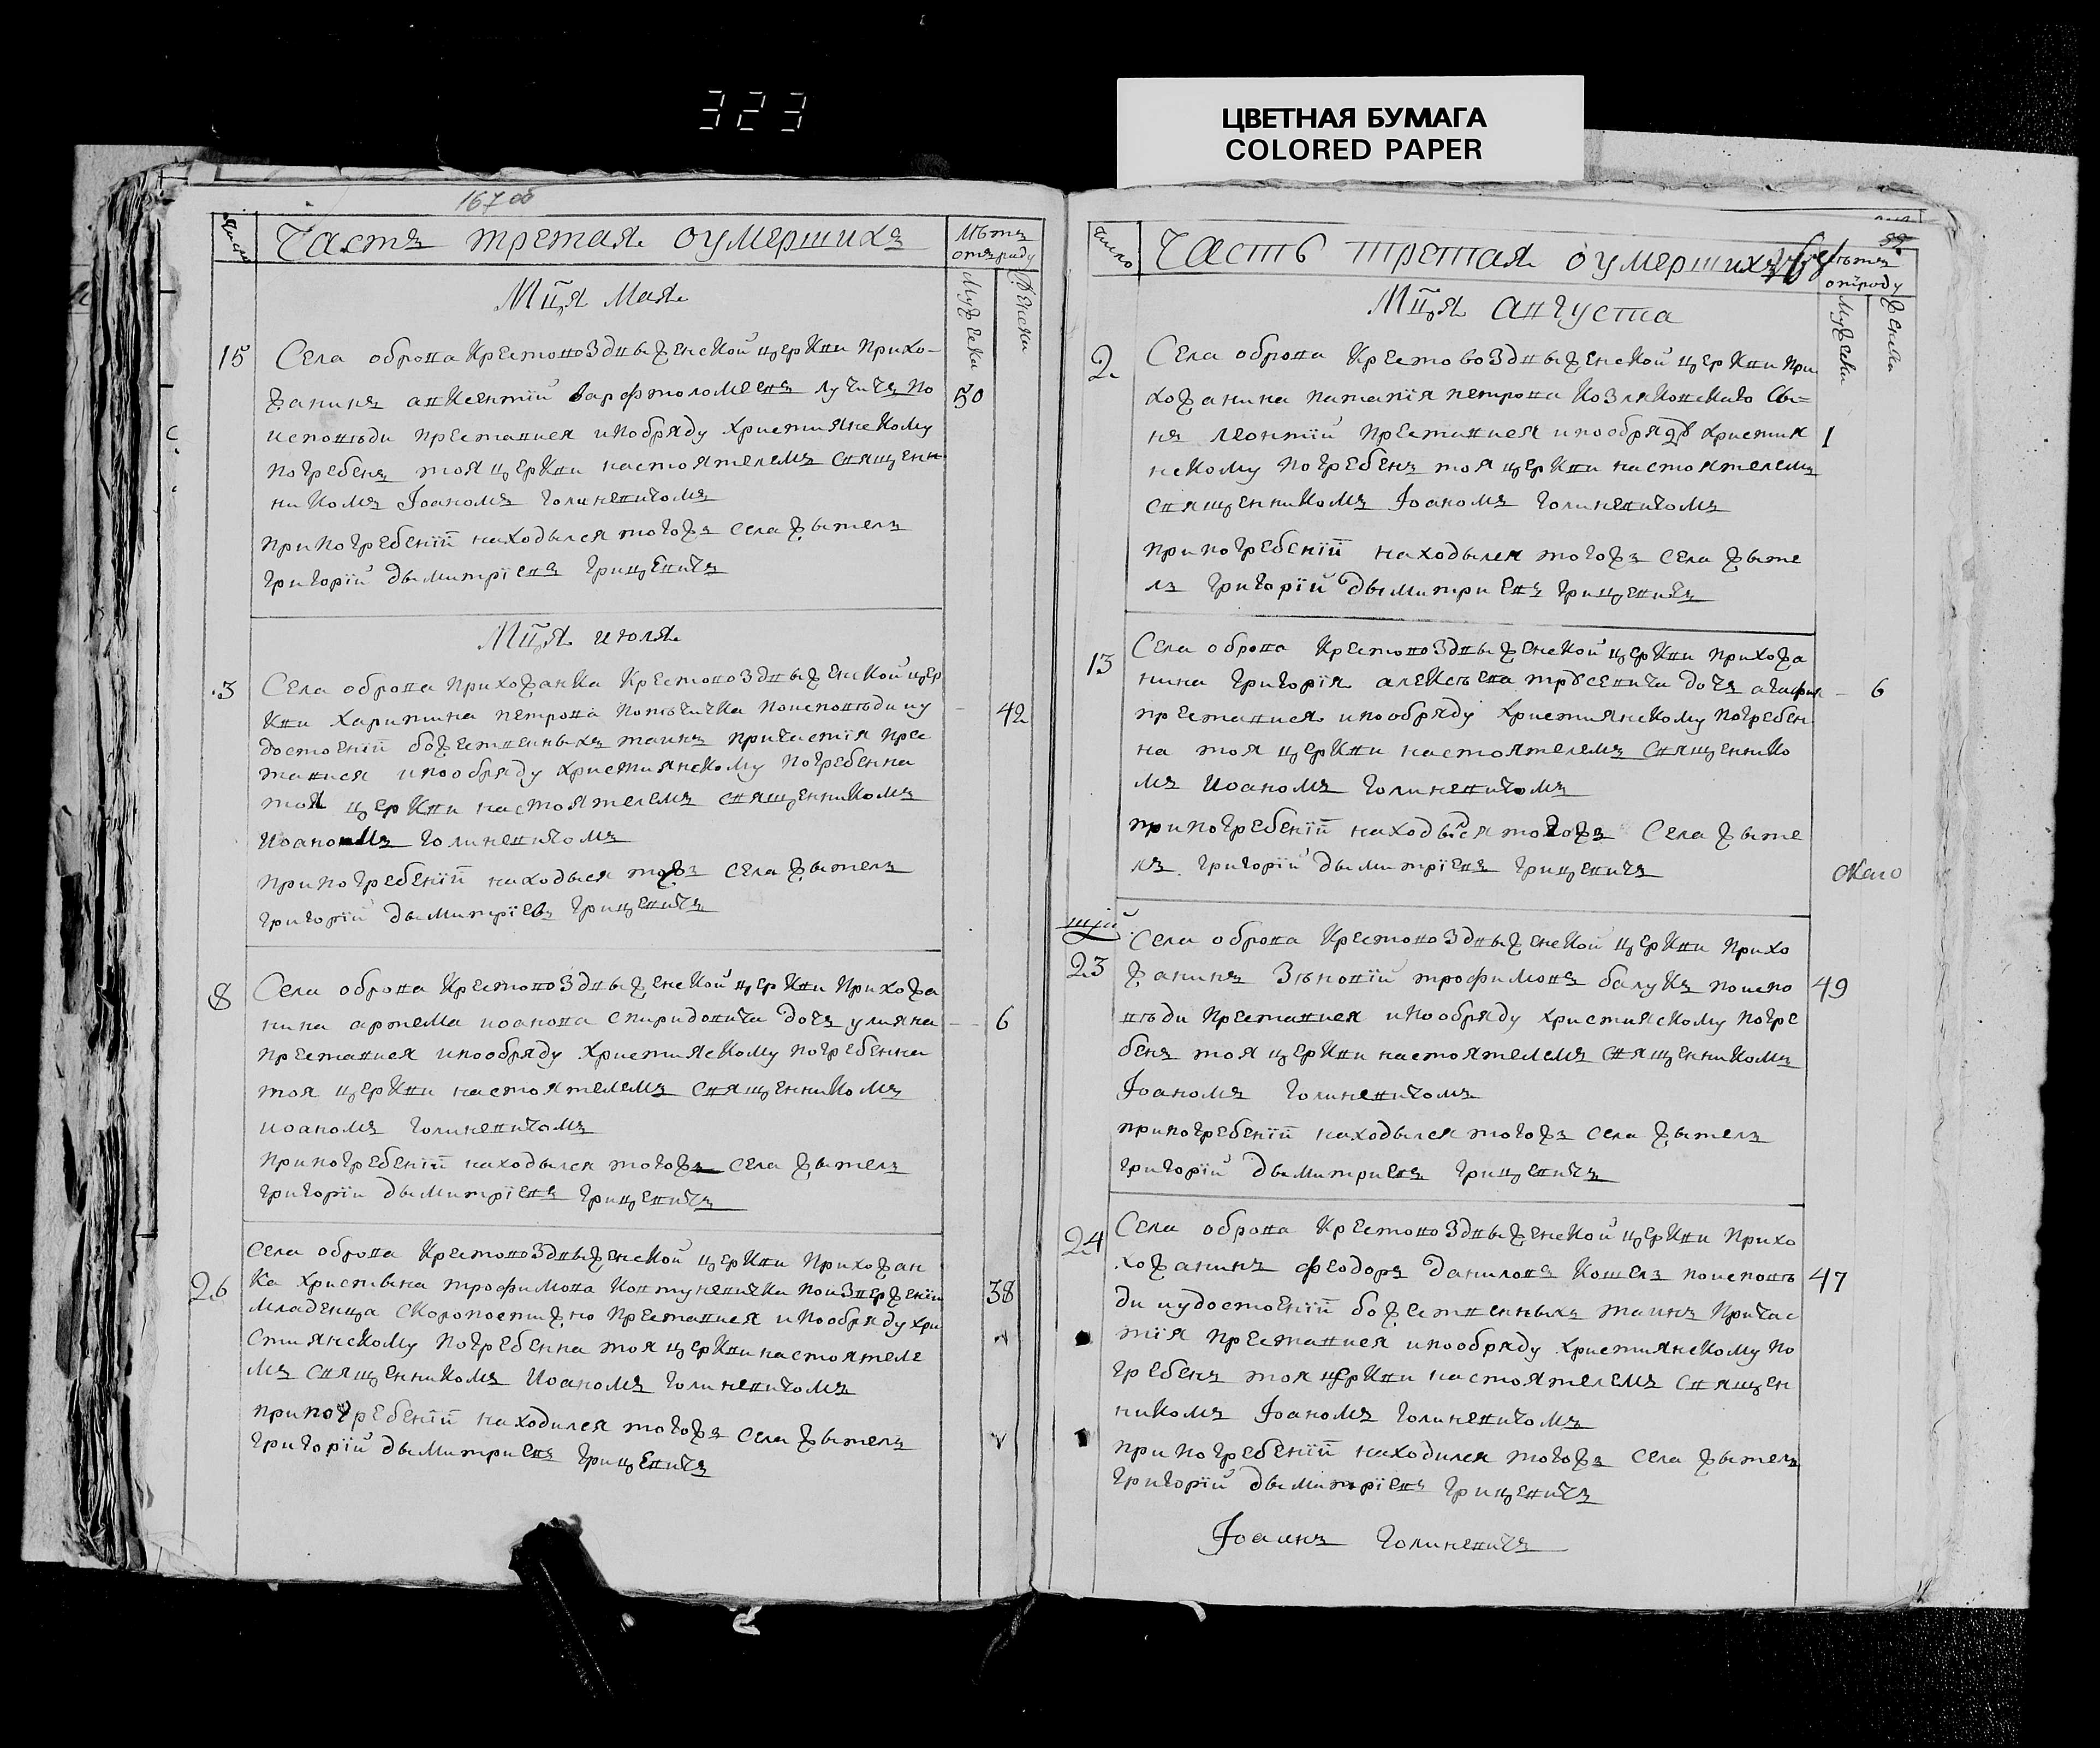 323
ЦВЕТНАЯ БУМАГА
COLORED PAPER
167 об
Число
Частъ третая оумершихъ
Лѣтъ
отъроду
Мужески
Женски
Мц҃я Мая
15
Села оброва Крестовоздвыженской церкви Прихо-
жанинъ авксентій варфтоломеевъ лучичъ по
50
исповѣди преставися и пообряду християнскому
погребенъ тоя церкви настоятелемъ священ
никомъ Іоаномъ Голиневичомъ
при погребеніи находылся тогожъ села жытель
Григорій дымитріевъ Грицевичъ
Мц҃я июля
3
Села оброва Прихожанка Крестовоздвыженской цер
кви Харитина петрова поисповѣди иу
42
достоеніи божественныхъ таинъ причастія прес
тавися и пообряду християнскому погребенна
тоя церкви настоятелемъ священникомъ
Иоаномъ Голиневичомъ
при погребеніи находыся тожъ села жытель
Григорій дымитріевъ Грицевичъ
8
Села оброва Крестовоздвыженской церкви Прихожа
нина артема иоанова спиридовича дочъ улияна
6
преставися и пообряду християскому погребенна
тоя церкви настоятелемъ священникомъ
иоаномъ Голиневичомъ
При погребеніи находылся тогожъ села жытель
Григорій дымитріевъ Грицевичъ
26
Села оброва Крестовоздвыженской церкви Прихожан
ка христына трофимова Ковтуневичка поизверженіи
38
младенца скоропостижно преставися и пообряду хри
стиянскому погребенна тоя церкви настоятеле
мъ священникомъ Иоаномъ Голиневичомъ
при погребеніи находился тогожъ села жытель
Григорій дымитриевъ Грицевичъ
Число
Часть третая оумершихъ
лѣтъ
отроду
Мужески
Женски
Мц҃я августа
2
Села оброва Крестовоздвыженской церкви При
хожанина петрова Козляковскаго Сы=
нъ леонтій преставися и пообряду христия
1
нскому погребенъ тоя церкви настоятелемъ
священникомъ Іоаномъ Голиневичомъ
при погребеніи находылся тогожъ села жыте
ль Григорій дымитриевъ Грицевичъ
13
Села оброва Крестовоздвыженской церкви прихожа
нина Григорія алексѣева дочъ агафия
6
преставися и пообряду християнскому погребен
на тоя церкви настоятелемъ священнико
мъ Иоаномъ Голиневичомъ
при погребеніи находыся тогожъ Села жыте
ль Григорій дымитріевъ Грицевичъ
23
Села оброва Крестовоздвыженской церкви прихо
жанинъ Зѣновій трофимовъ балукъ поиспо
49
вѣди преставися и пообряду християскому погре
бенъ тоя церкви настоятелемъ священникомъ
Іоаномъ Голиневичомъ
при погребеніи находылся тогожъ села жытель
Григорій дымитриевъ Грицевичъ
24
Села оброва Крестовоздвыженской церкви Прихо
хожанинъ феодоръ даниловъ Кошель поисповѣ
47
ди иудостоеніи божественныхъ таинъ Причас
тія преставися и пообряду християнскому по
гребенъ тоя церкви настоятелемъ священ
никомъ Іоаномъ Голиневичомъ
при погребеніи находился тогожъ села жытель
Григорій дымитріевъ Грицевичъ
Іоаннъ Голиневичъ